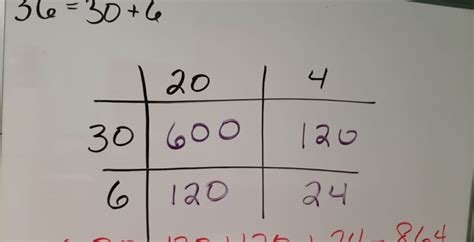 36 = 30 + 6
20 4
30 600 120
6 120 24
120 + 24 = 864